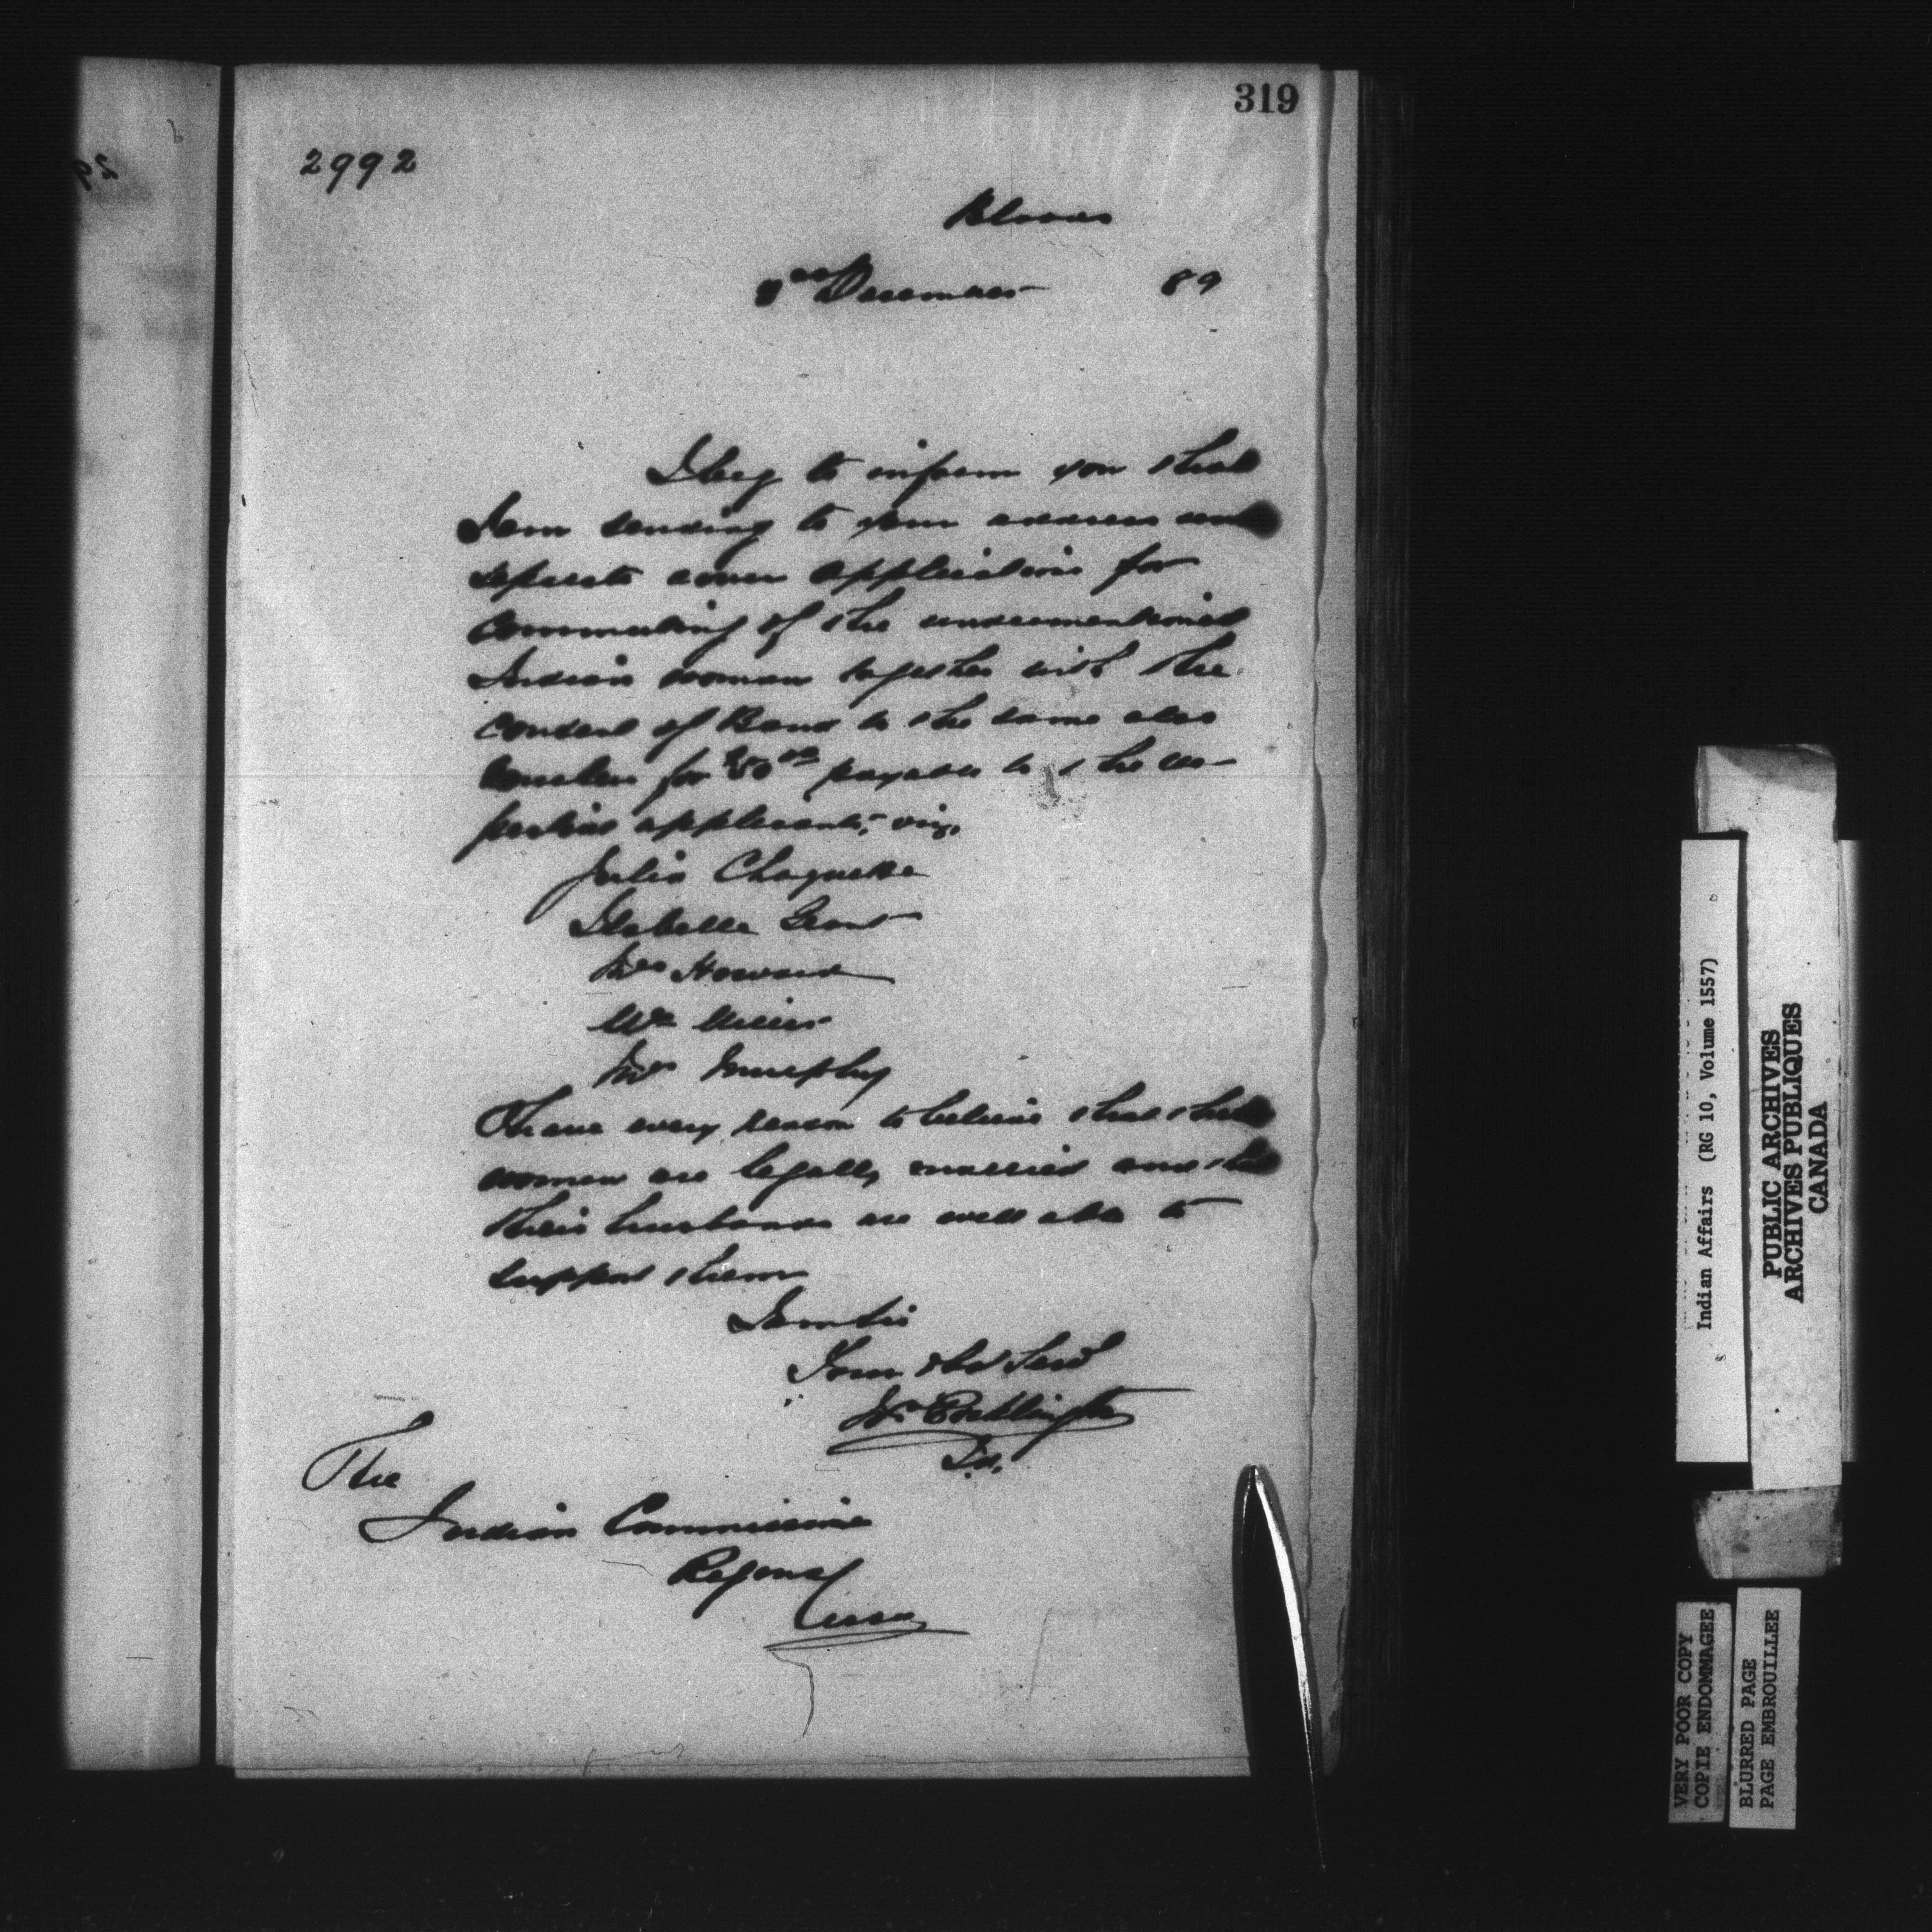 319
2992
Bloods
December 89
I beg to inform you that
I am sending to your address und
separate cover applications for
commuting of the undermentioned
Indian women together with the
consent of Band to the same also
for 50 payable to the res-
pective applicants, viz,
Julia Choquette
Isabella Grant
Mrs Howard
Miller
Mrs Murphy
I have every reason to believe that these
women are legally married and that
their husbands are well able to
support them
I am Sir
Your Obd Servt
Wm Pocklington
I.A.
The
Indian Commissioner
Regina
Assa
Indian Affairs (RG 10, Volume 1557)
PUBLIC ARCHIVES
ARCHIVES PUBLIQUES
CANADA
VERY POOR COPY
COPIE ENDOMMAGEE
BLURRED PAGE
PAGE EMBROUILLEE